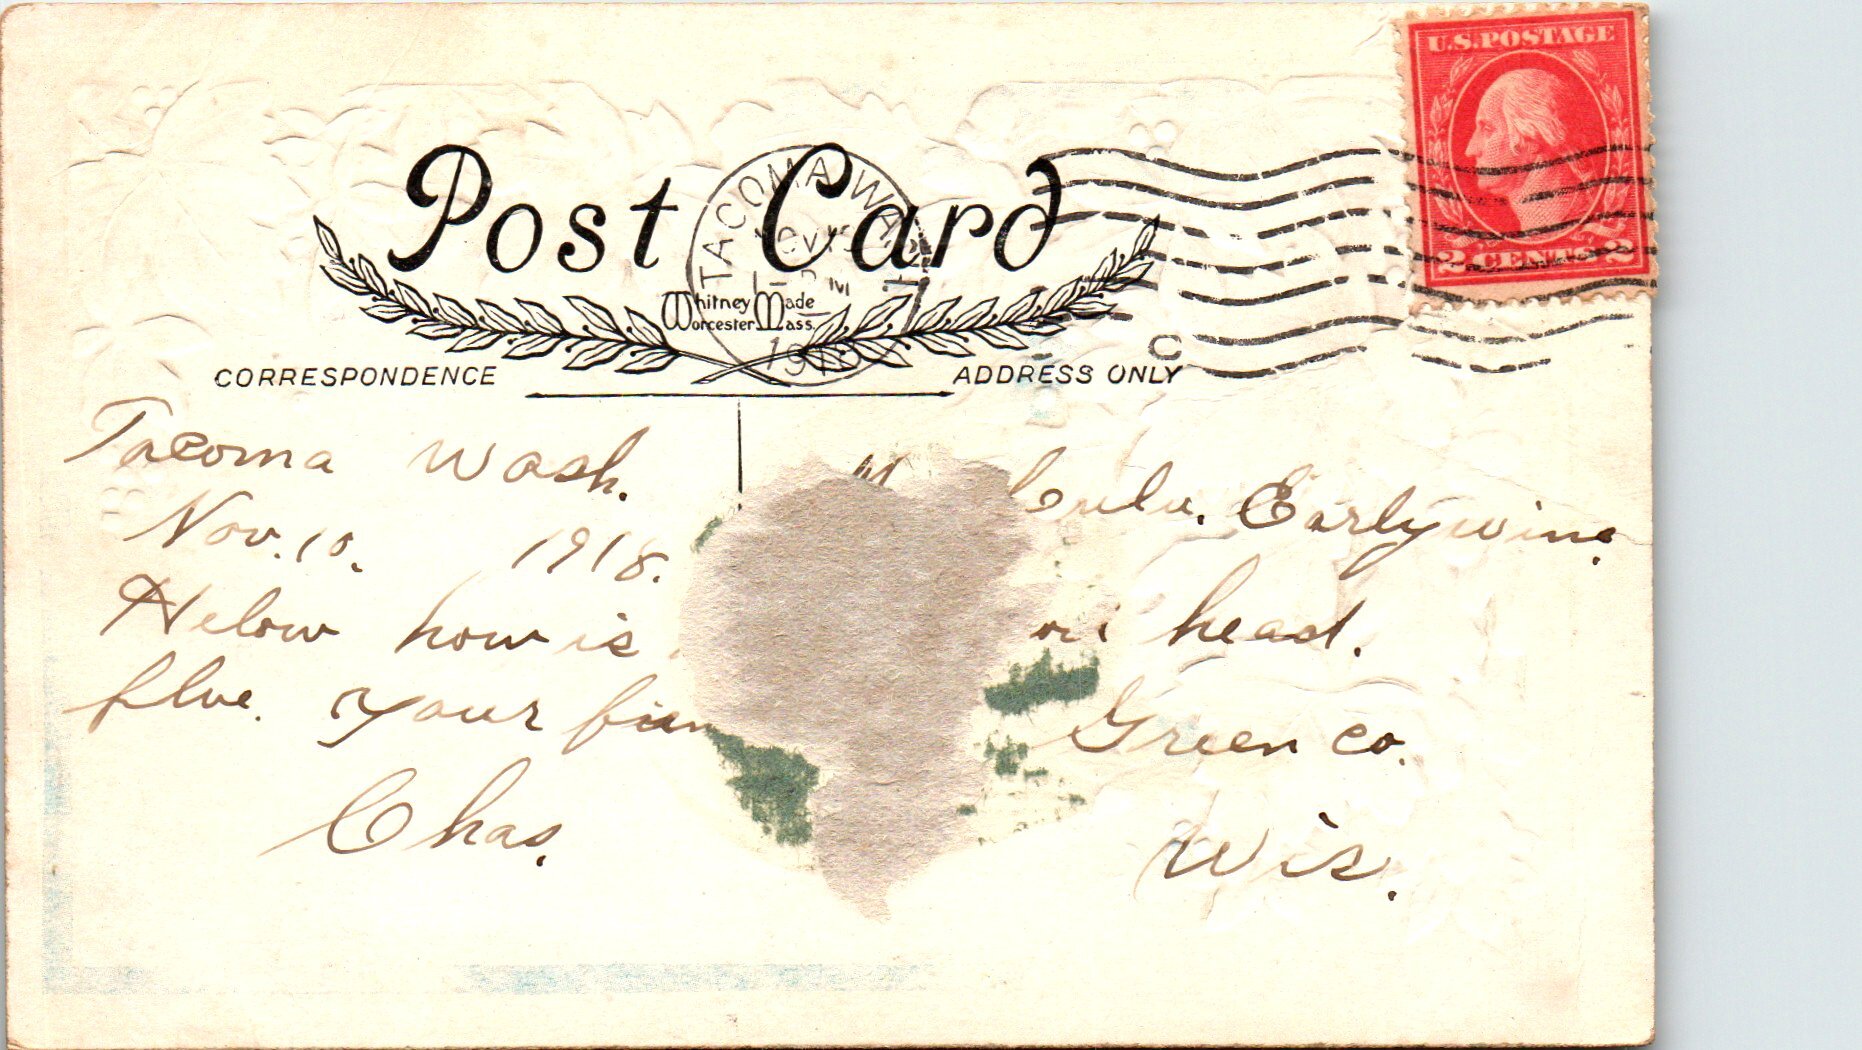 U.S. POSTAGE
2 CENTS 2
Post Card
TACOMA WASH.
1918
Whitney Made
Worcester Mass.
CORRESPONDENCE
ADDRESS ONLY
C
Tacoma Wash.
Nov. 10. 1918.
Helow how is
flue. Your
Chas.
Lulu. Earlywine.
head.
Green co.
Wis.